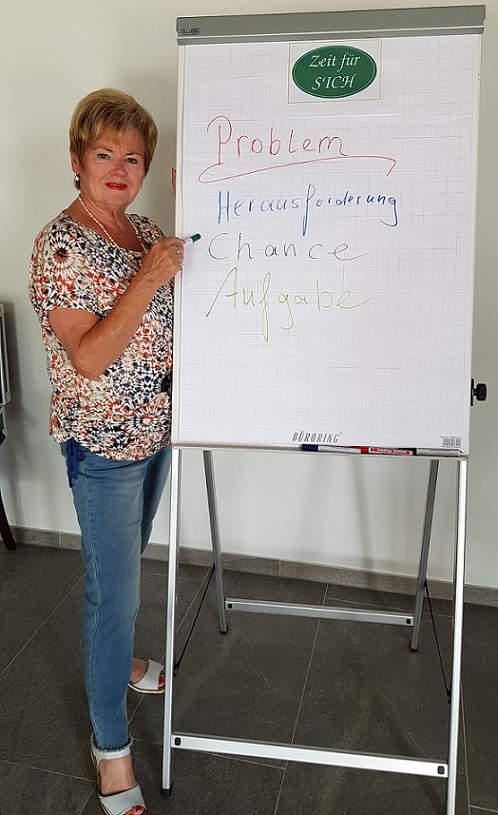 Zeit für
SICH
Problem
Herausforderung
Chance
Aufgabe
BÜRORING